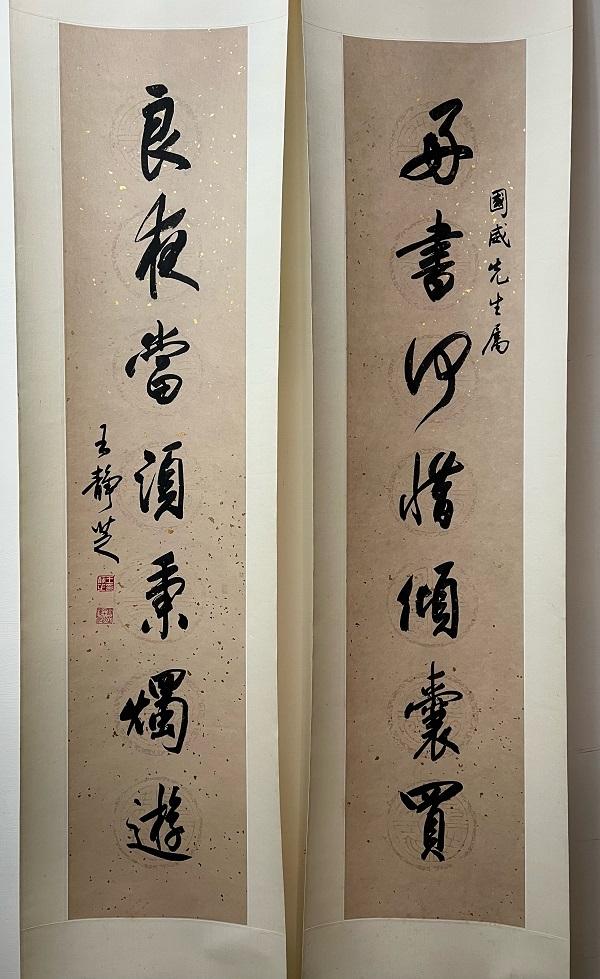 好書何惜傾囊買
國威先生属
良夜當須秉燭遊
王靜芝